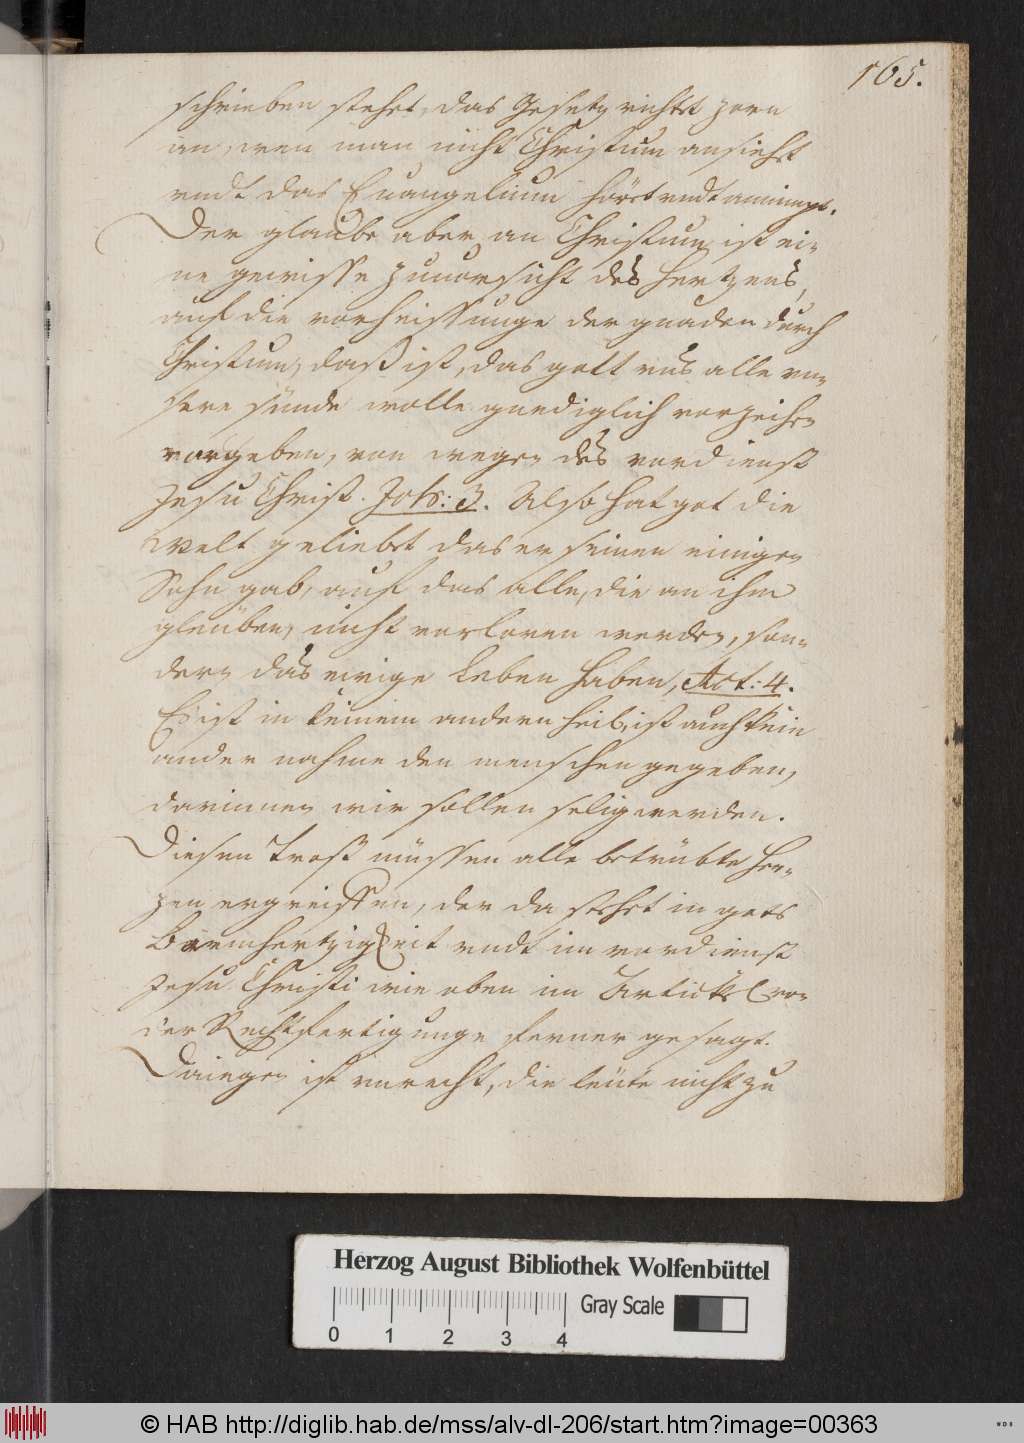 165.
schrieben stehet, das Gesetz richtet zorn
an, wen man nicht Christum ansiehet
vndt das Euangelium höret vndt annimpt.
Der glaube aber an Christum ist ei-
ne gewisse zuuorsicht des hertzens,
auf die vorheissunge der gnaden durch
Christum, daß ist, das gott vns alle vn-
sere sünde wolle gnediglich vorzeihen
vorgeben, von wegen des vordienst
Jesu Christ. Joh: 3. Also hat got die
welt geliebet das er seinen einigen
Sohn gab, auf das alle, die an ihm
gleuben, nicht verloren werden, son-
dern das ewige leben haben, Act: 4.
Es ist in keinem andern heil, ist auch kein
ander nahme den menschen gegeben,
darinnen wir sollen selig werden.
Diesen trost müssen alle betrübte her-
zen ergreiffen, der da stehet in gots
Barmhertzigkeit vndt im vordienst
Jesu Christi wie oben im Artickel von
der Rechtfertigunge ferner gesagt.
ist vnrecht, die leute nicht zu
Herzog August Bibliothek Wolfenbüttel
Gray Scale
0 1 2 3 4
© HAB http://diglib.hab.de/mss/alv-dl-206/start.htm?image=00363